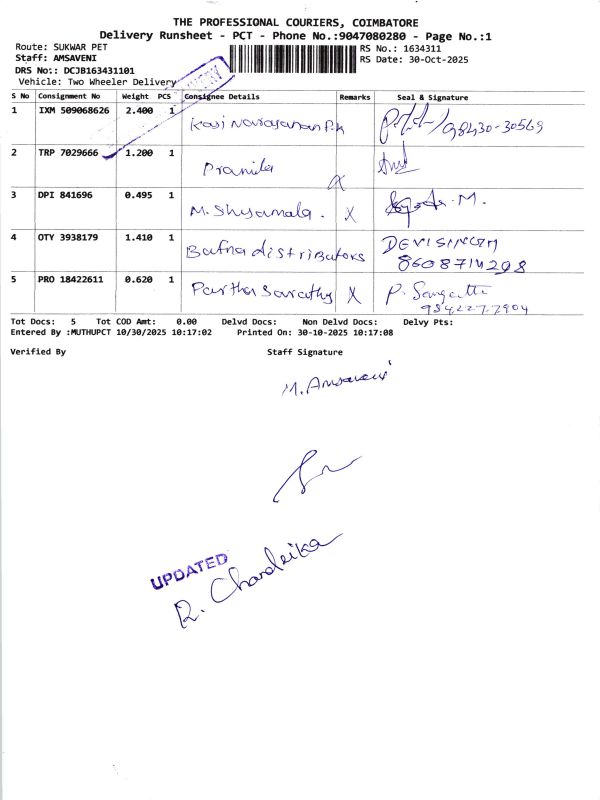 THE PROFESSIONAL COURIERS, COIMBATORE
Delivery Runsheet - PCT - Phone No.:9047080280 - Page No.:1
Route: SUKWAR PET
RS No.: 1634311
Staff: AMSAVENI
RS Date: 30-Oct-2025
DRS No:: DCJB163431101
Vehicle: Two Wheeler Delivery
S No Consignment No Weight PCS Consignee Details Remarks Seal & Signature
1 IXM 509068626 2.400 1 Kasi Narayanan P.k 98430-30569
2 TRP 7029666 1.200 1 Pramila
3 DPI 841696 0.495 1 M. Shyamala. X
4 OTY 3938179 1.410 1 Bafna distributors DEVISINGH
8608714298
5 PRO 18422611 0.620 1 Partha Sarathy X P. Sangeetha
9842277904
Tot Docs: 5 Tot COD Amt: 0.00 Delvd Docs: Non Delvd Docs: Delvy Pts:
Entered By :MUTHUPCT 10/30/2025 10:17:02 Printed On: 30-10-2025 10:17:08
Verified By Staff Signature
M. Amsaveni
UPDATED
R. Chandrika